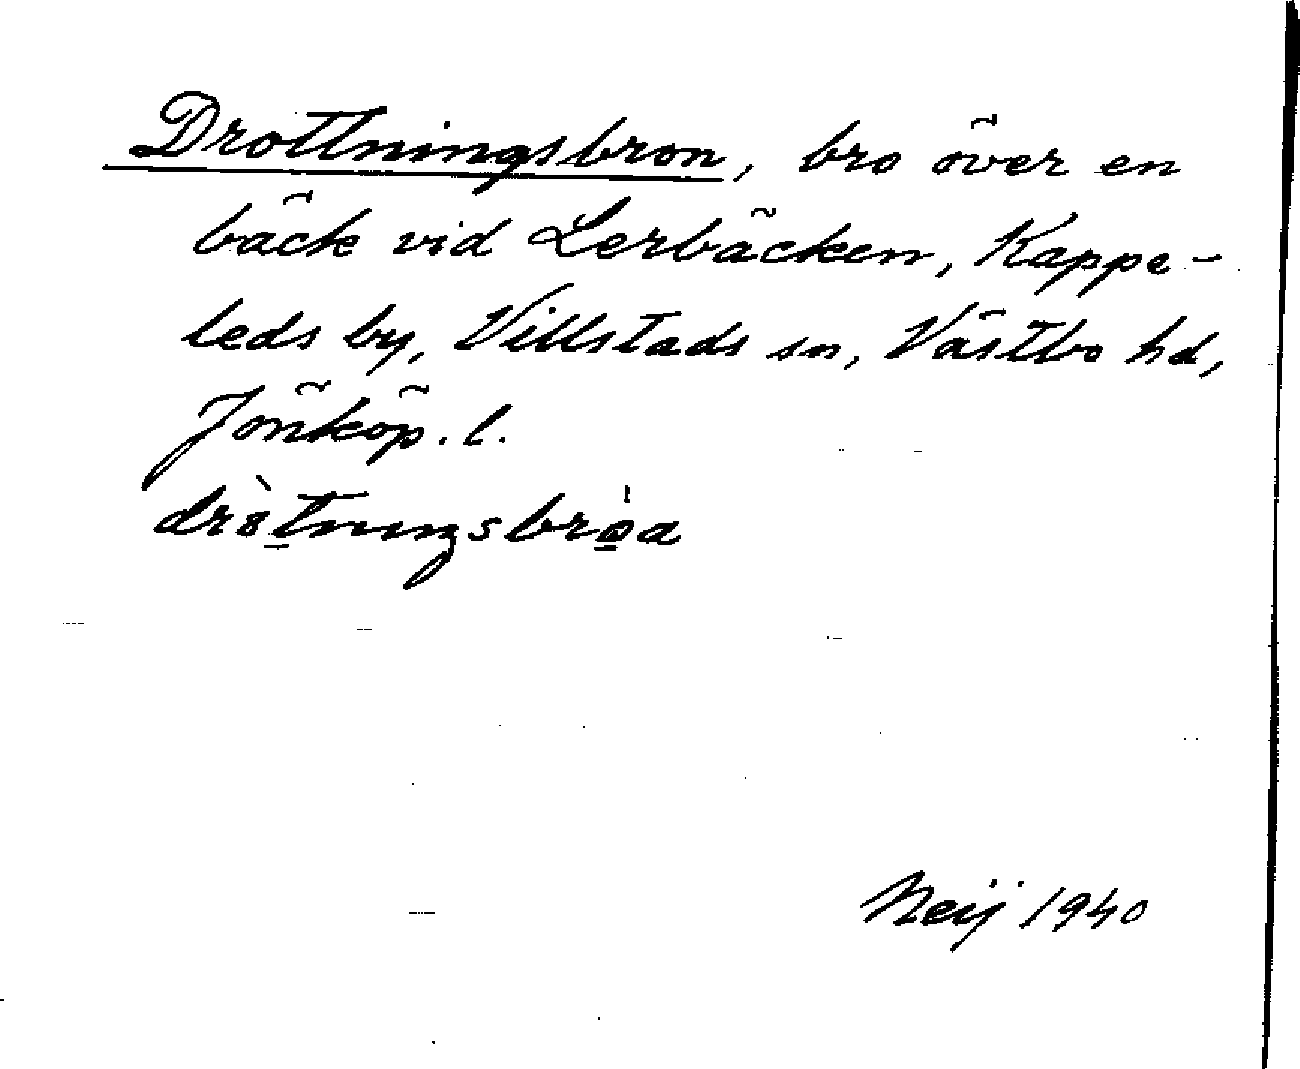 Drottningsbron, bro över en
bäck vid Lerbäcken, Kappe-
leds by, Villstads sn, Västbo hd,
Jönköp. l.
Neij 1940